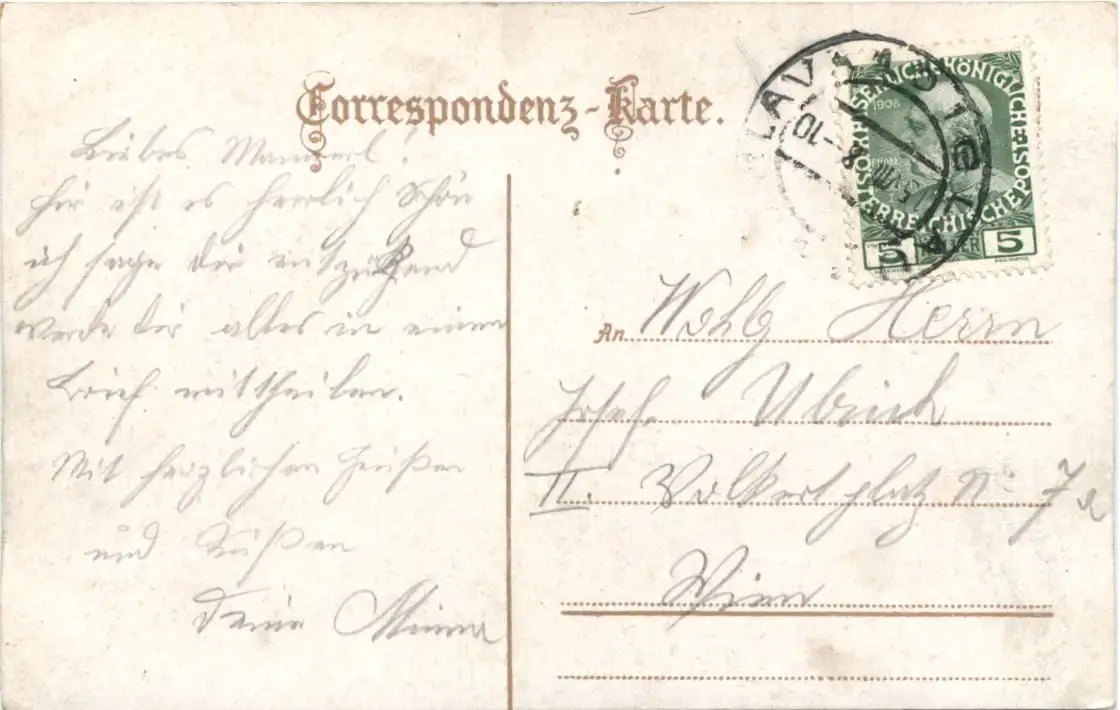 Correspondenz-Karte.
Liebes Mannerl!
hier ist es herrlich schön
ich sage dir entzückend
werde dir alles in einem
Brief mittheilen.
Mit herzlichen Grüßen
und Küßen
Deine Minna
KAISERLICH KÖNIGLICHE ÖSTERREICHISCHE POST
1908
5 HELLER 5
LAV
VIII
10
An Wohlg Herrn
Josef
II. Volkertplatz No 7a
Wien